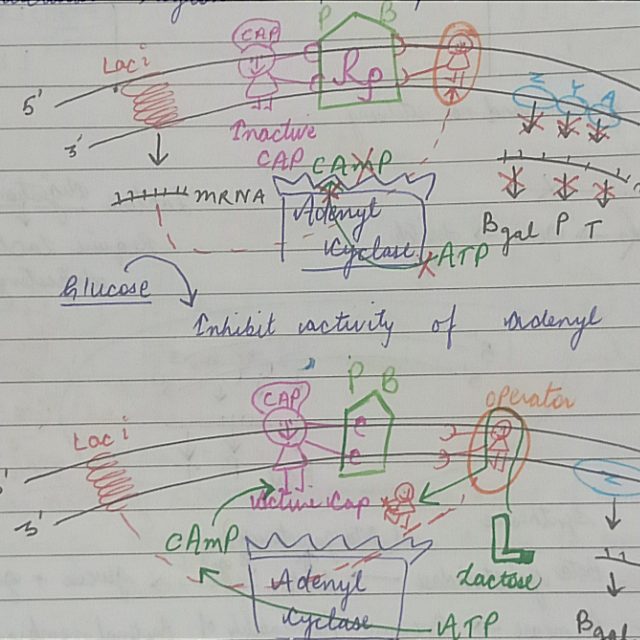 CAP
P B
Lac i
Rp
5'
Z Y A
3'
Inactive
CAP
CAMP
mRNA
Adenyl
Cyclase
ATP
Bgal P T
Glucose
Inhibit activity of Adenyl
P B
CAP
operator
Lac i
e
e
3'
Active Cap
CAMP
Lactose
Adenyl
Cyclase
ATP
Bgal